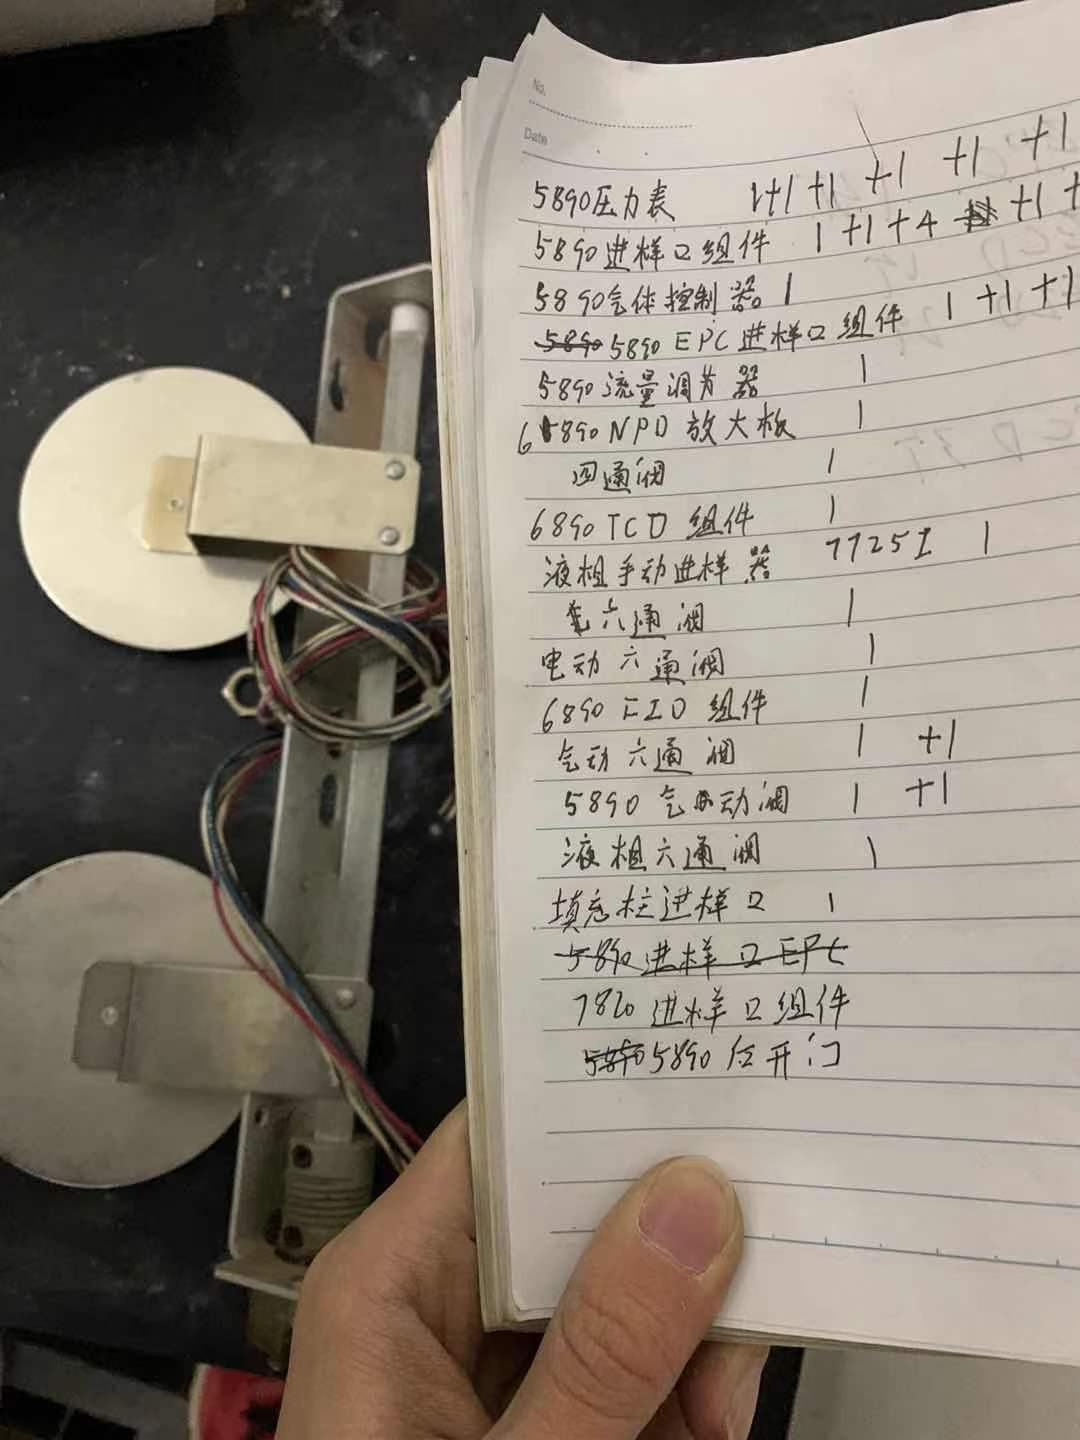 No.
Date
5890压力表 1+1 +1 +1 +1 +1
5890进样口组件 1 +1 +4 +1 +
5890气体控制器 1
5890 5890 EPC进样口组件 1 +1 +1
5890流量调节器 1
6890 NPD 放大板 1
四通阀 1
6890 TCD 组件 1
液相手动进样器 7725I 1
六通阀 1
电动六通阀 1
6890 FID 组件 1
气动六通阀 1 +1
5890 气动阀 1 +1
液相六通阀 1
填充柱进样口 1
5890进样口EPC
7820 进样口组件
5890 5890 开门